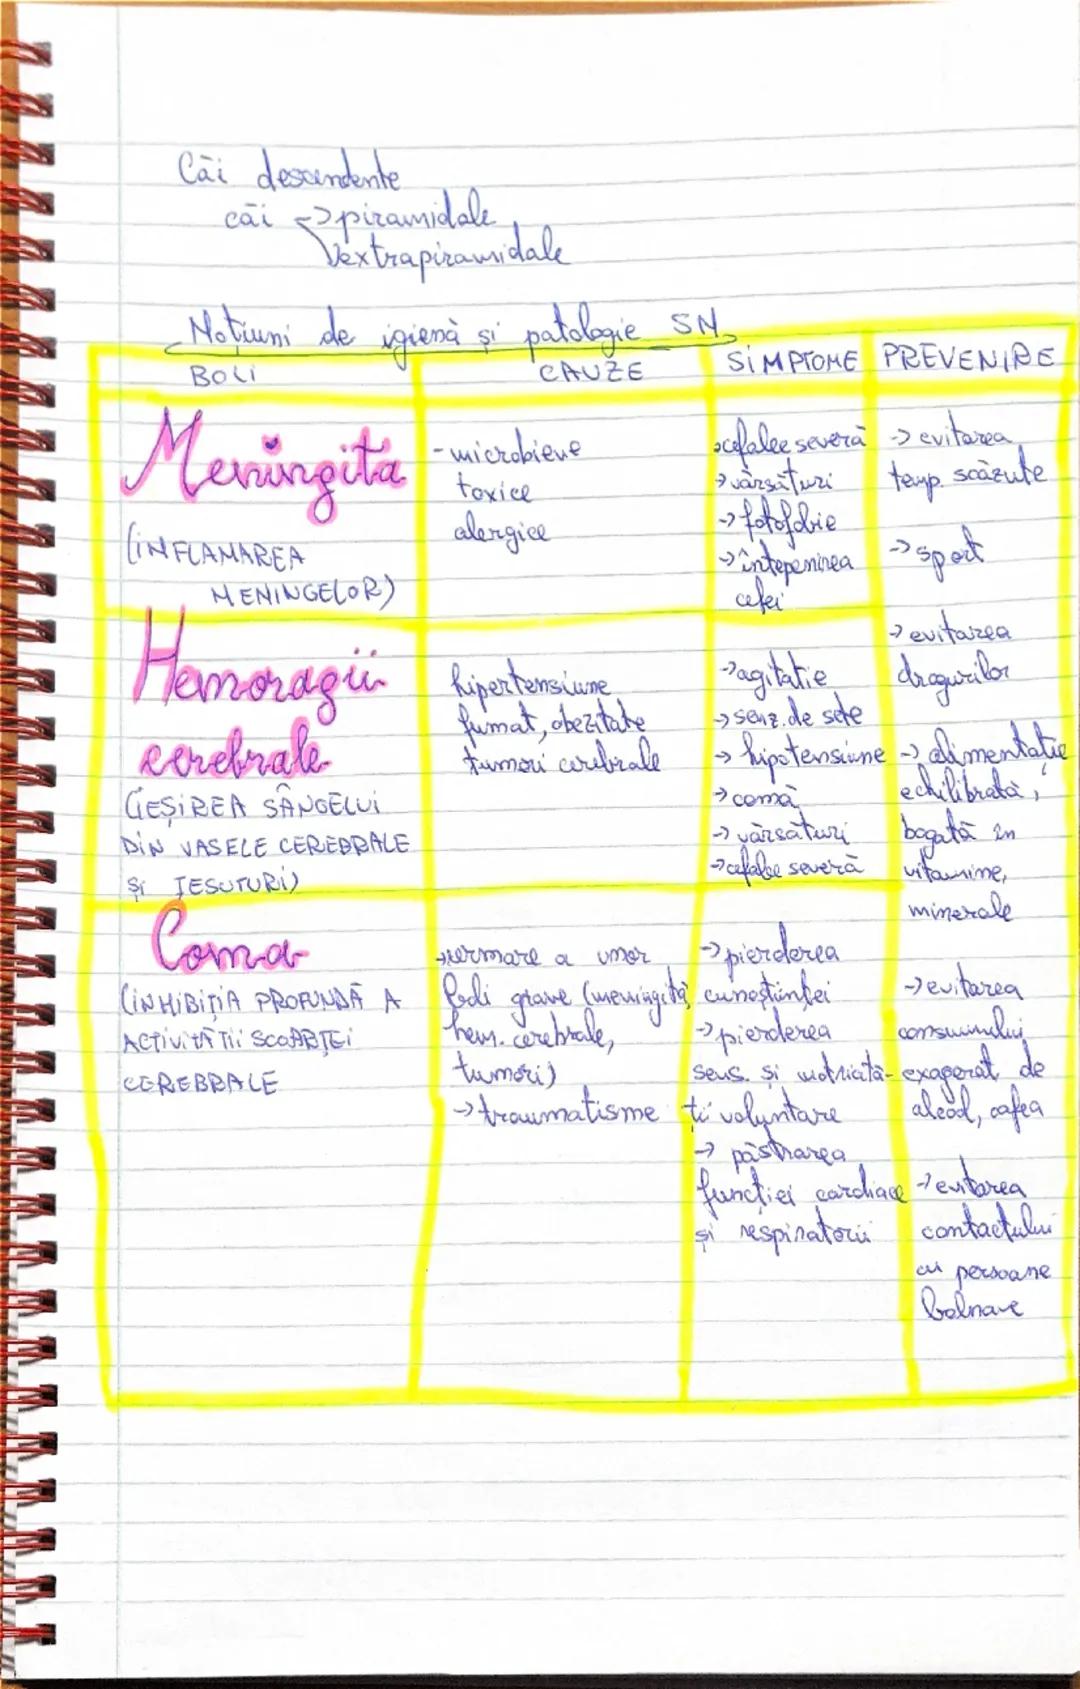 Căi descendente
căi -> piramidale
extrapiramidale
Noțiuni de igienă și patologie SN
BOLI
CAUZE
SIMPTOME
PREVENIRE
Meningita
(INFLAMAREA
MENINGELOR)
- microbiene
toxice
alergice
-> cefalee severă
-> vărsături
-> fotofobie
-> întepenirea
cefei
Hemoragii
cerebrale
(IEȘIREA SÂNGELUI
DIN VASELE CEREBRALE
ȘI ȚESUTURI)
hipertensiune
fumat, obezitate
tumori cerebrale
-> agitatie
-> senz. de sete
-> hipotensiune
-> comă
-> vărsături
-> cefalee severă
Coma
(INHIBIȚIA PROFUNDĂ A
ACTIVITĂȚII SCOARȚEI
CEREBRALE
-> urmare a unor
boli grave (meningită,
hem. cerebrale,
tumori)
-> traumatisme
-> pierderea
cunoștiinței
-> pierderea
sens. și motricită-
ți voluntare
-> păstrarea
funcției cardiace
și respiratorii
-> evitarea
temp. scăzute
-> sport
-> evitarea
drogurilor
-> alimentație
echilibrată,
bogată în
vitamine,
minerale
-> evitarea
consumului
exagerat de
alcool, cafea
-> evitarea
contactului
cu persoane
bolnave